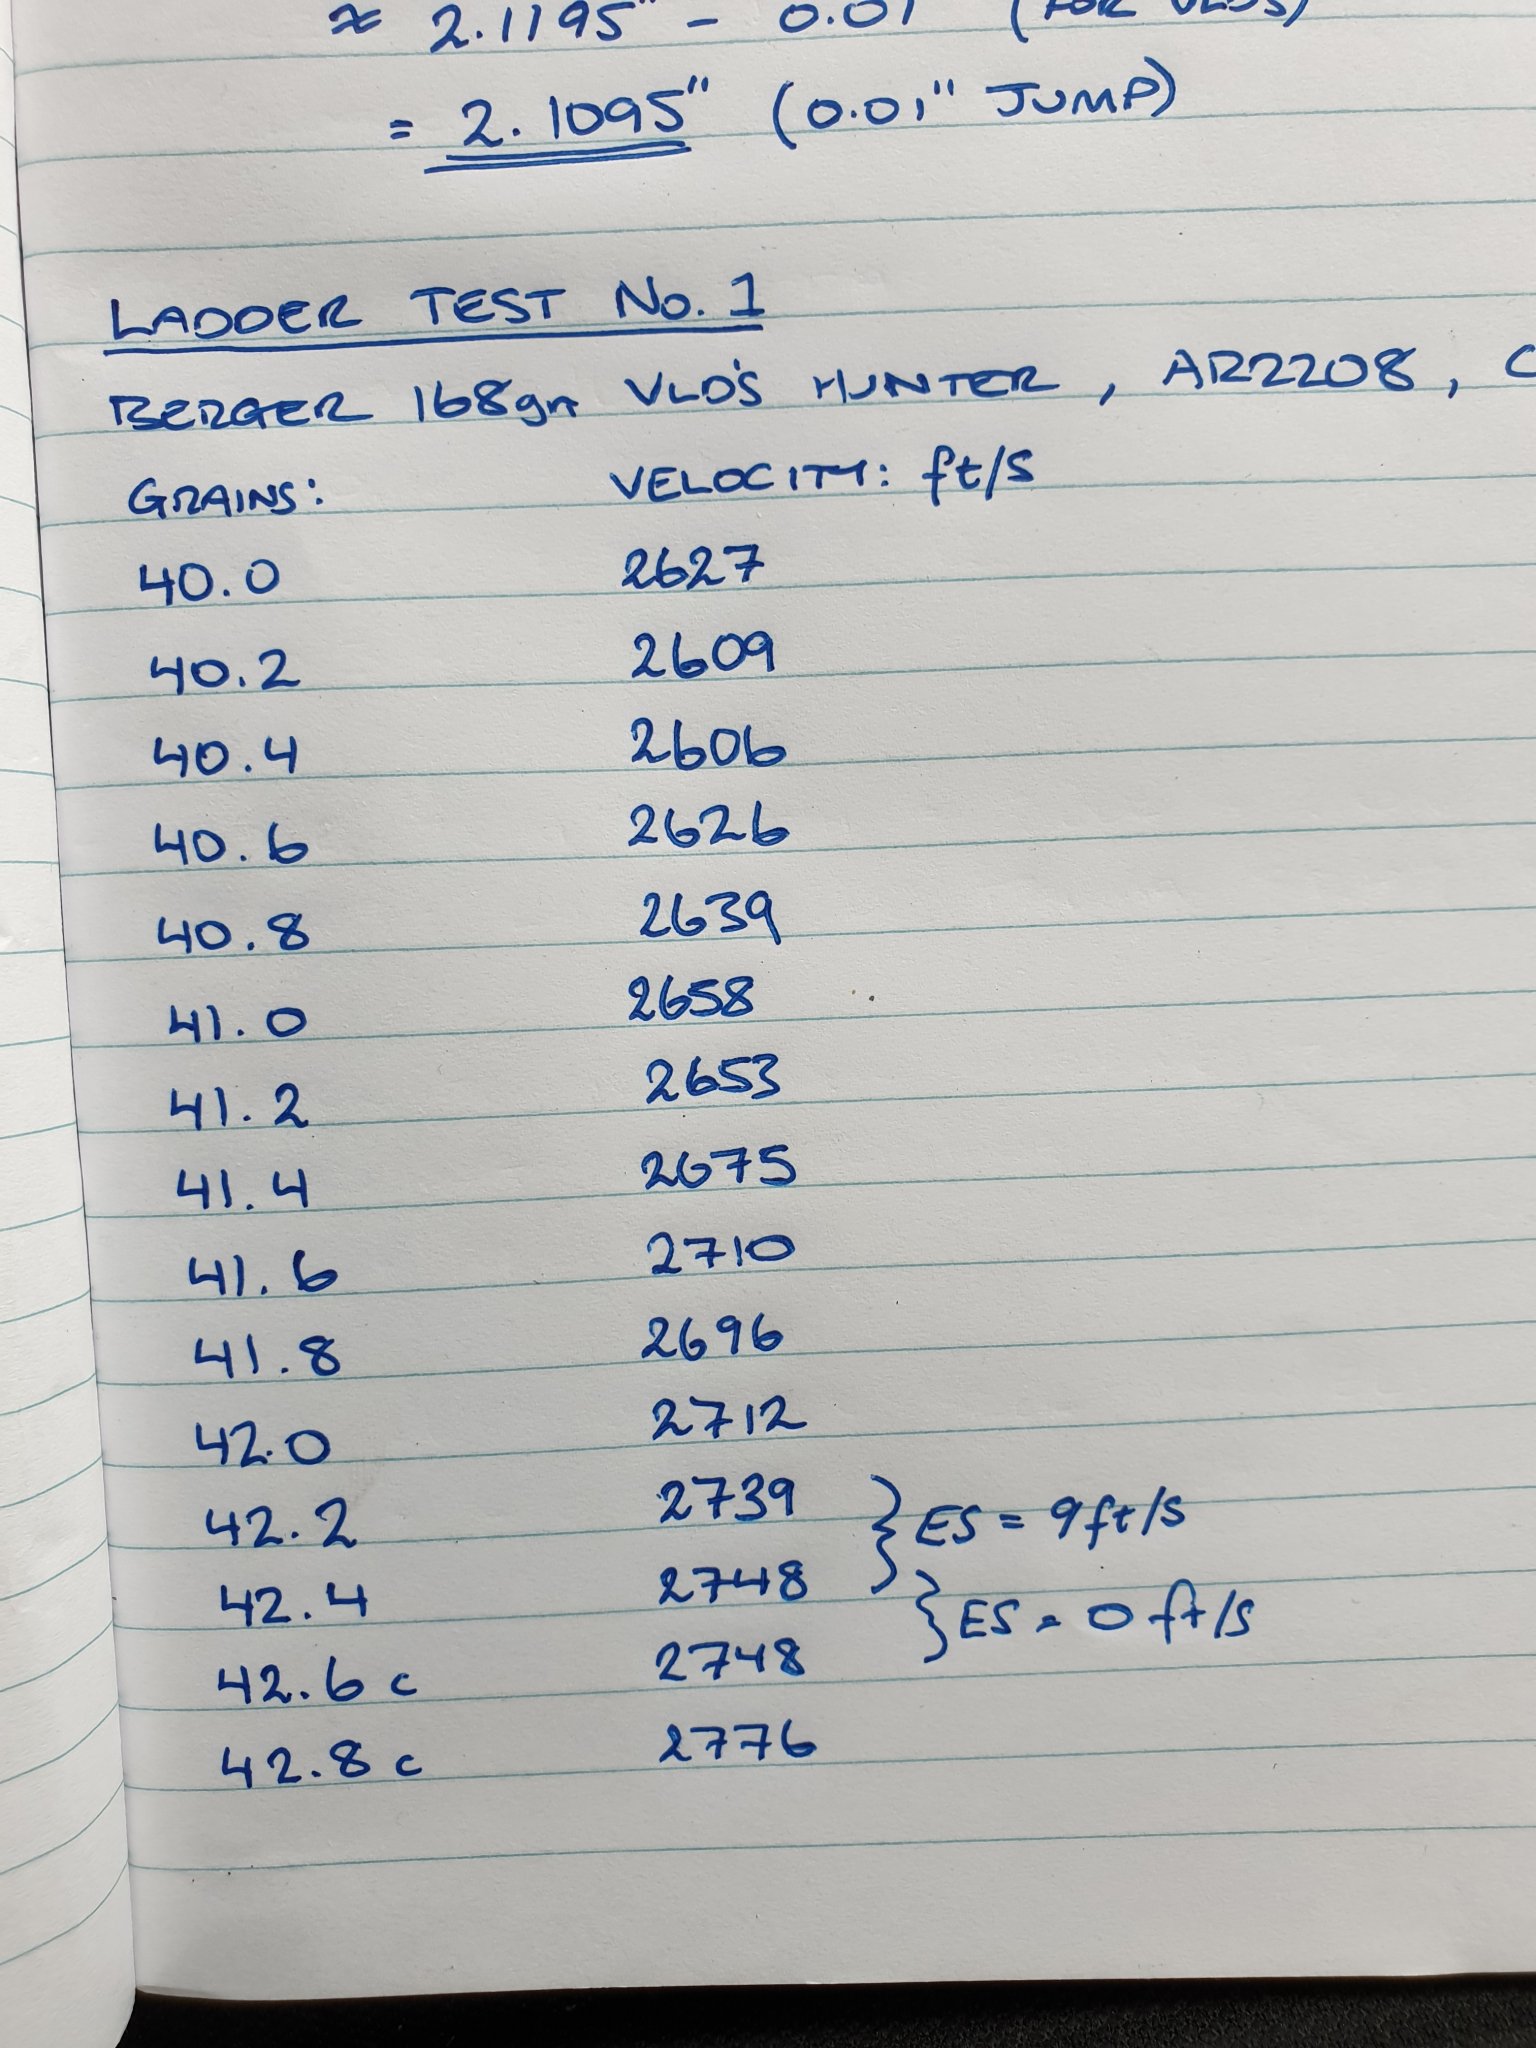 ≈ 2.1195" - 0.01" (FOR VLDS)
= 2.1095" (0.01" JUMP)
LADDER TEST No. 1
BERGER 168gn VLD'S HUNTER, AR2208, C
GRAINS: VELOCITY: ft/s
40.0 2627
40.2 2609
40.4 2606
40.6 2626
40.8 2639
41.0 2658
41.2 2653
41.4 2675
41.6 2710
41.8 2696
42.0 2712
42.2 2739 } ES = 9ft/s
42.4 2748 } ES = 0 ft/s
42.6 c 2748
42.8 c 2776